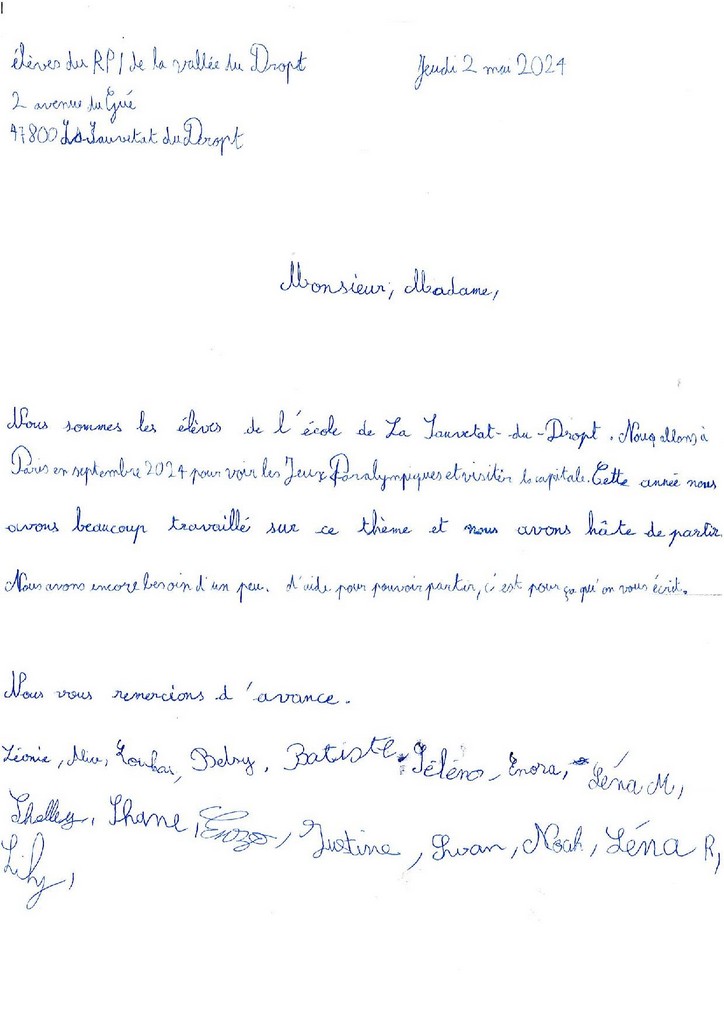 élèves du RPI de la vallée du Dropt
Jeudi 2 mai 2024
2 avenue du Gué
47800 La Sauvetat du Dropt
Monsieur, Madame,
Nous sommes les élèves de l'école de La Sauvetat-du-Dropt. Nous allons à
Paris en septembre 2024 pour voir les Jeux Paralympiques et visiter la capitale. Cette année nous
avons beaucoup travaillé sur ce thème et nous avons hâte de partir.
Nous avons encore besoin d'un peu. d'aide pour pouvoir partir, c'est pour ça qu'on vous écrit.
Nous vous remercions d'avance.
Léonie, Betsy, Batiste, Séléna, Enora, Léna M,
Shelley, Shane, Enzo, Justine, Swan, Noah, Léna R,
Lily,